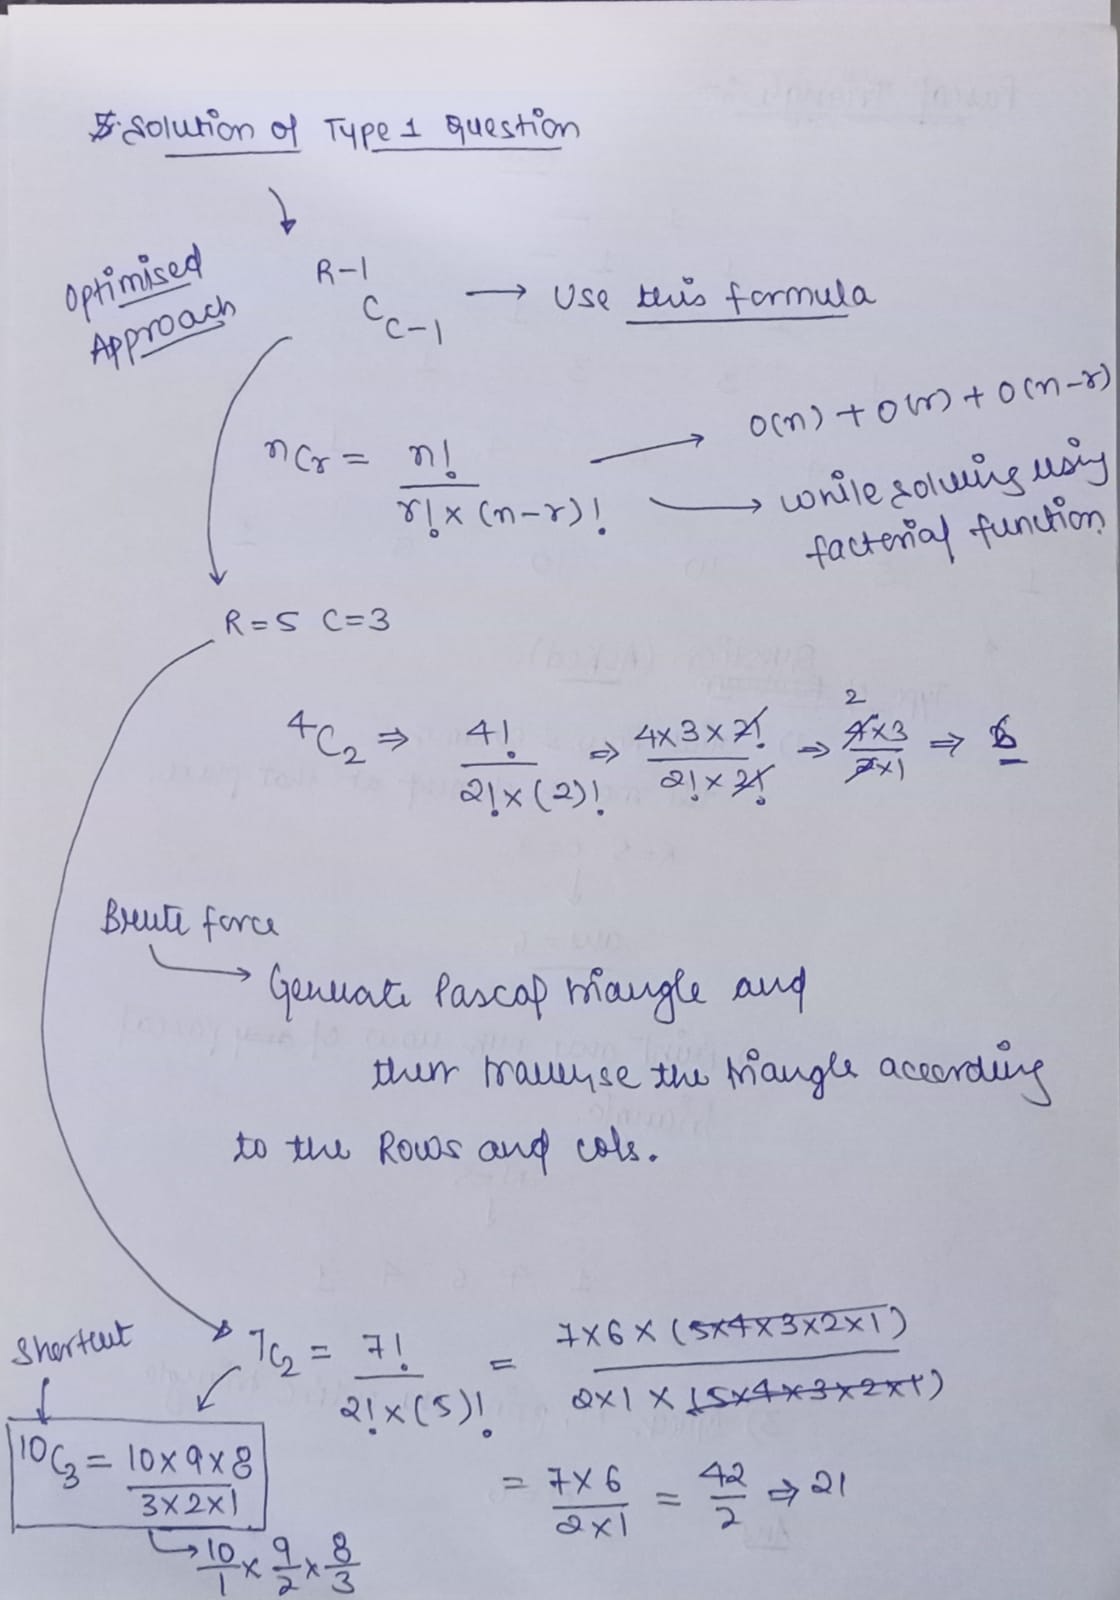 Solution of Type 1 Question
Optimised
Approach
R-1
C
C-1
→ Use this formula
nCr = n! / r! × (n-r)!
→ O(n) + O(r) + O(n-r)
→ while solving using
factorial function
R=5 C=3
⁴C₂ ⇒ 4! / 2! × (2)! ⇒ 4×3×2! / 2!×2! ⇒ 4×3 / 2×1 ⇒ 6
2
Brute force
→ Generate Pascal triangle and
then traverse the triangle according
to the Rows and cols.
Shortcut
⁷C₂ = 7! / 2!×(5)! = 7×6×(5×4×3×2×1) / 2×1×(5×4×3×2×1)
= 7×6 / 2×1 = 42 / 2 ⇒ 21
¹⁰C₃ = 10×9×8 / 3×2×1
→ 10/1 × 9/2 × 8/3